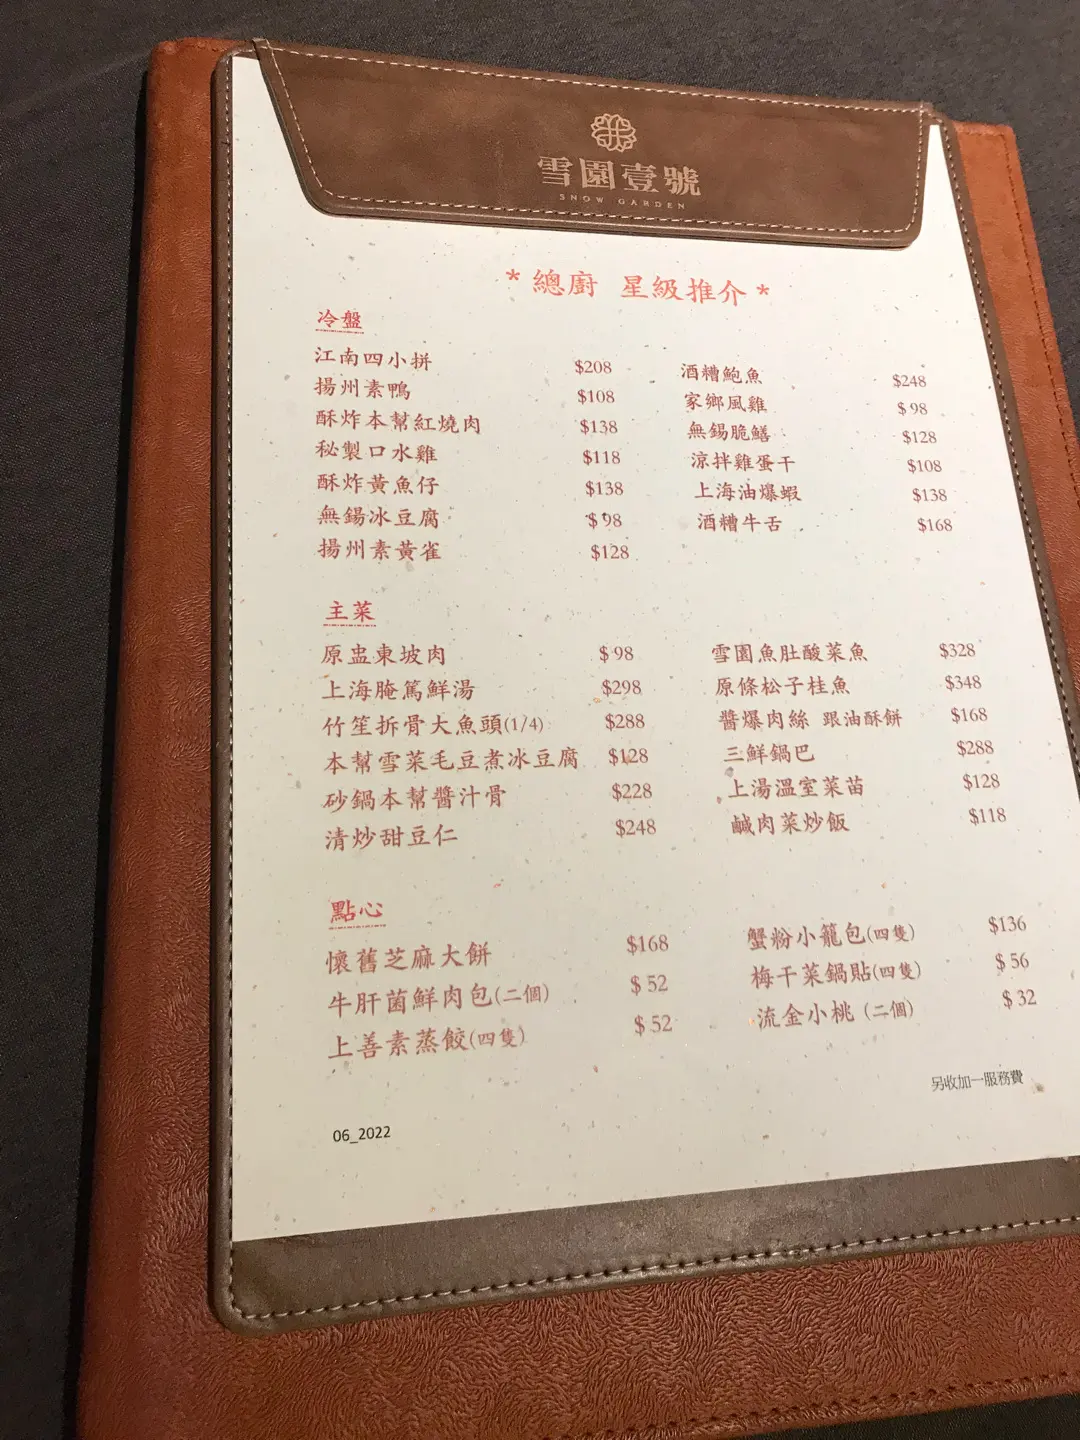 雪園壹號
SNOW GARDEN
*總廚 星級推介*
冷盤
江南四小拼 $208
揚州素鴨 $108
酥炸本幫紅燒肉 $138
秘製口水雞 $118
酥炸黃魚仔 $138
無錫冰豆腐 $98
揚州素黃雀 $128
酒糟鮑魚 $248
家鄉風雞 $98
無錫脆鱔 $128
涼拌雞蛋干 $108
上海油爆蝦 $138
酒糟牛舌 $168
主菜
原盅東坡肉 $98
上海腌篤鮮湯 $298
竹笙拆骨大魚頭(1/4) $288
本幫雪菜毛豆煮冰豆腐 $128
砂鍋本幫醬汁骨 $228
清炒甜豆仁 $248
雪園魚肚酸菜魚 $328
原條松子桂魚 $348
醬爆肉絲 跟油酥餅 $168
三鮮鍋巴 $288
上湯溫室菜苗 $128
鹹肉菜炒飯 $118
點心
懷舊芝麻大餅 $168
牛肝菌鮮肉包(二個) $52
上善素蒸餃(四隻) $52
蟹粉小籠包(四隻) $136
梅干菜鍋貼(四隻) $56
流金小桃 (二個) $32
另收加一服務費
06_2022